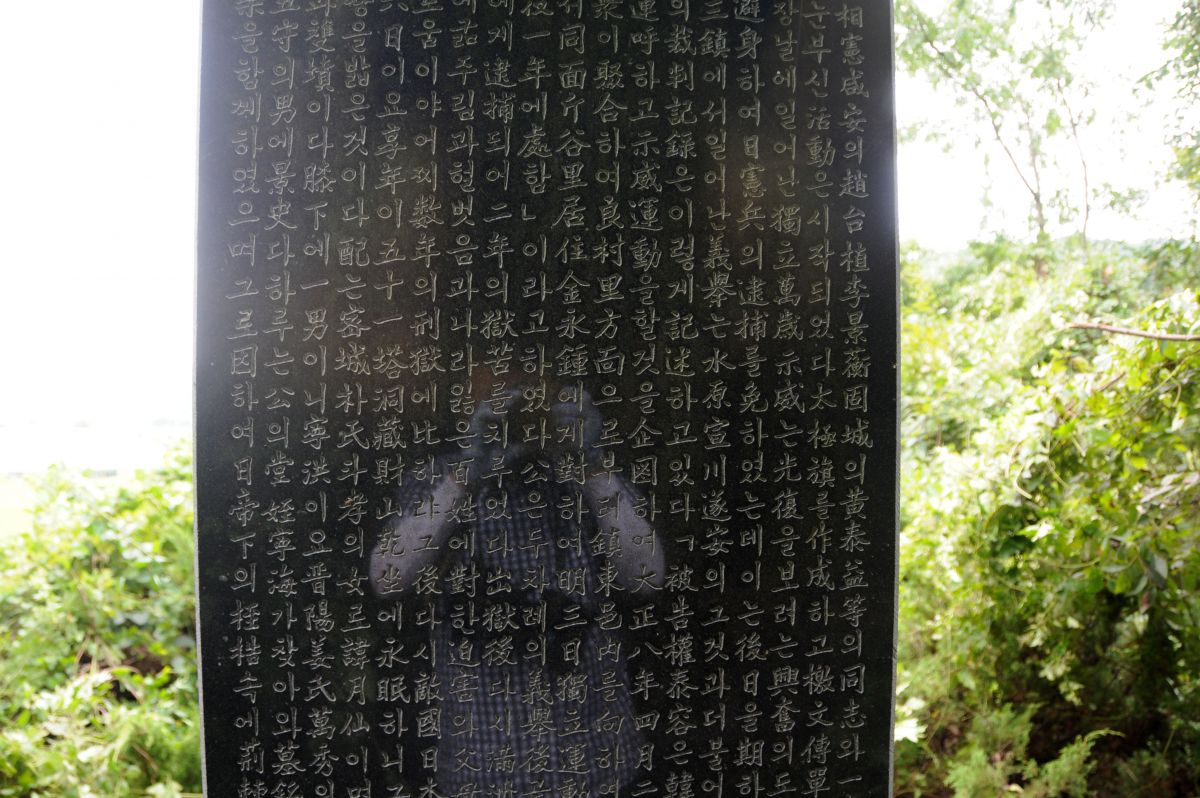 相憲咸安의趙台植李景薇固城의黄泰益等의同志와一
눈부신活動은시작되었다太極旗를作成하고檄文傳單
장날에일어난獨立萬歲示威는光復을보려는興奮의도
避身하여日憲兵의逮捕를免하였는데이는後日을期하
三鎮에서일어난義擧는水原宣川遂安의그것과더불어
의裁判記録은이렇게記述하고있다「被告權泰容은韓
運呼하고示威運動을할것을企図하여大正八年四月二
衆이聚合하여良村里方面으로부터鎮東邑内를向하여
서同面斤谷里居住金永鍾에게對하여明三日獨立運動
役一年에處함」이라고하였다公은두차례의義擧後고
에게逮捕되어二年의獄苦를치루었다出獄後다시滿洲
에굶주림과헐벗음과나라잃은百姓에對한迫害와父母
로움이야어찌数年의刑獄에比하랴그後다시敵國日
日이요享年이五十一塔洞藏財山乾坐에永眠하니그
을밟은것이다配는密城朴氏라孝의女로諱月仙이며
과雙墳이다膝下에一男이니寧洪이요晋陽姜氏萬秀의
守의男에景史다하루는公의堂姪寧海가찾아와墓銘
을함께하였으며그로因하여日帝下의桎梏속에荊棘